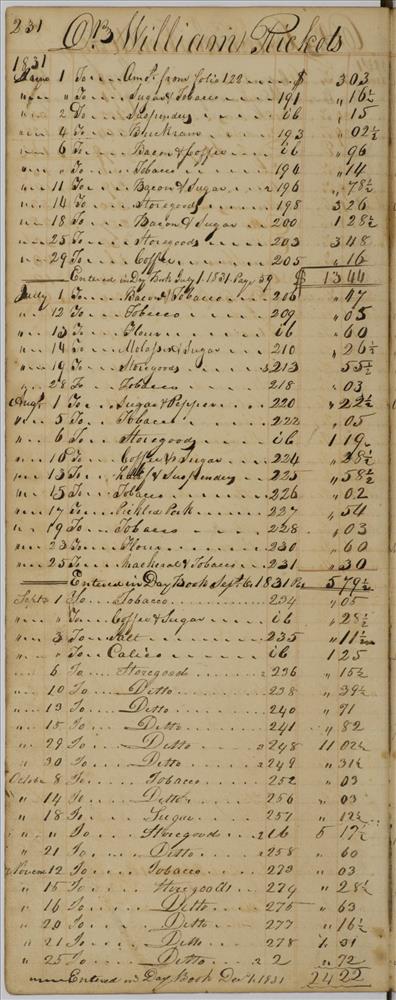 231 Dr. William Rickets
1831
1 To Amt. from folio 122 $ 3 03
" " To Sugar & Tobacco 191 " 16½
" 2 To Suspenders ib " 15
" 4 To Buckram 193 " 02½
" 6 To Bacon & Coffee ib " 96
" " To Tobacco 194 " 14
" 11 To Bacon & Sugar 196 " 78½
" 14 To Storegoods 198 3 26
" 18 To Bacon & Sugar 200 1 28½
" 25 To Storegoods 203 3 48
" 29 To Coffee 205 " 16
Entered in Day Book July 1. 1831. Page 59 $ 13 44
July 1 To Bacon & Tobacco 206 " 47
" 12 To Tobacco 209 " 05
" 13 To Flour ib " 60
" 14 To Molasses & Sugar 210 " 26½
" 19 To Storegoods 213 " 55½
" 28 To Tobacco 218 " 03
Augt. 1 To Sugar & Pepper 220 " 22½
" 5 To Tobacco 222 " 05
" 6 To Storegoods ib 1 19
" 10 To Coffee & Sugar 224 " 28½
" 13 To & Suspenders 225 " 58½
" 15 To Tobacco 226 " 02
" 17 To Pickled Pork 227 " 54
" 19 To Tobacco 228 " 03
" 23 To Flour 230 " 60
" 25 To Mackerel & Tobacco 231 " 30
Entered in Day Book Sept. 1831 5 79½
Septr. 1 To Tobacco 234 " 05
" " To Coffee & Sugar ib " 28½
" 3 To Salt 235 " 11½
" " To Calico ib 1 25
" 6 To Storegoods 236 " 15½
" 10 To Ditto 238 " 39½
" 13 To Ditto 240 " 91
" 15 To Ditto 241 " 82
" 29 To Ditto 248 11 02½
" 30 To Ditto 249 " 31½
October 8 To Tobacco 252 " 03
" 14 To Ditto 256 " 03
" 18 To Sugar 257 " 12½
" " To Storegoods ib 5 17½
" 21 To Ditto 258 " 60
Novem 12 To Tobacco 273 " 03
" 15 To Storegoods 274 " 28½
" 16 To Ditto 275 " 63
" 20 To Ditto 277 " 16½
" 21 To Ditto 278 1. 31
" 25 To Ditto 2 " 72
Entered in Day Book Decr. 1. 1831 24 22